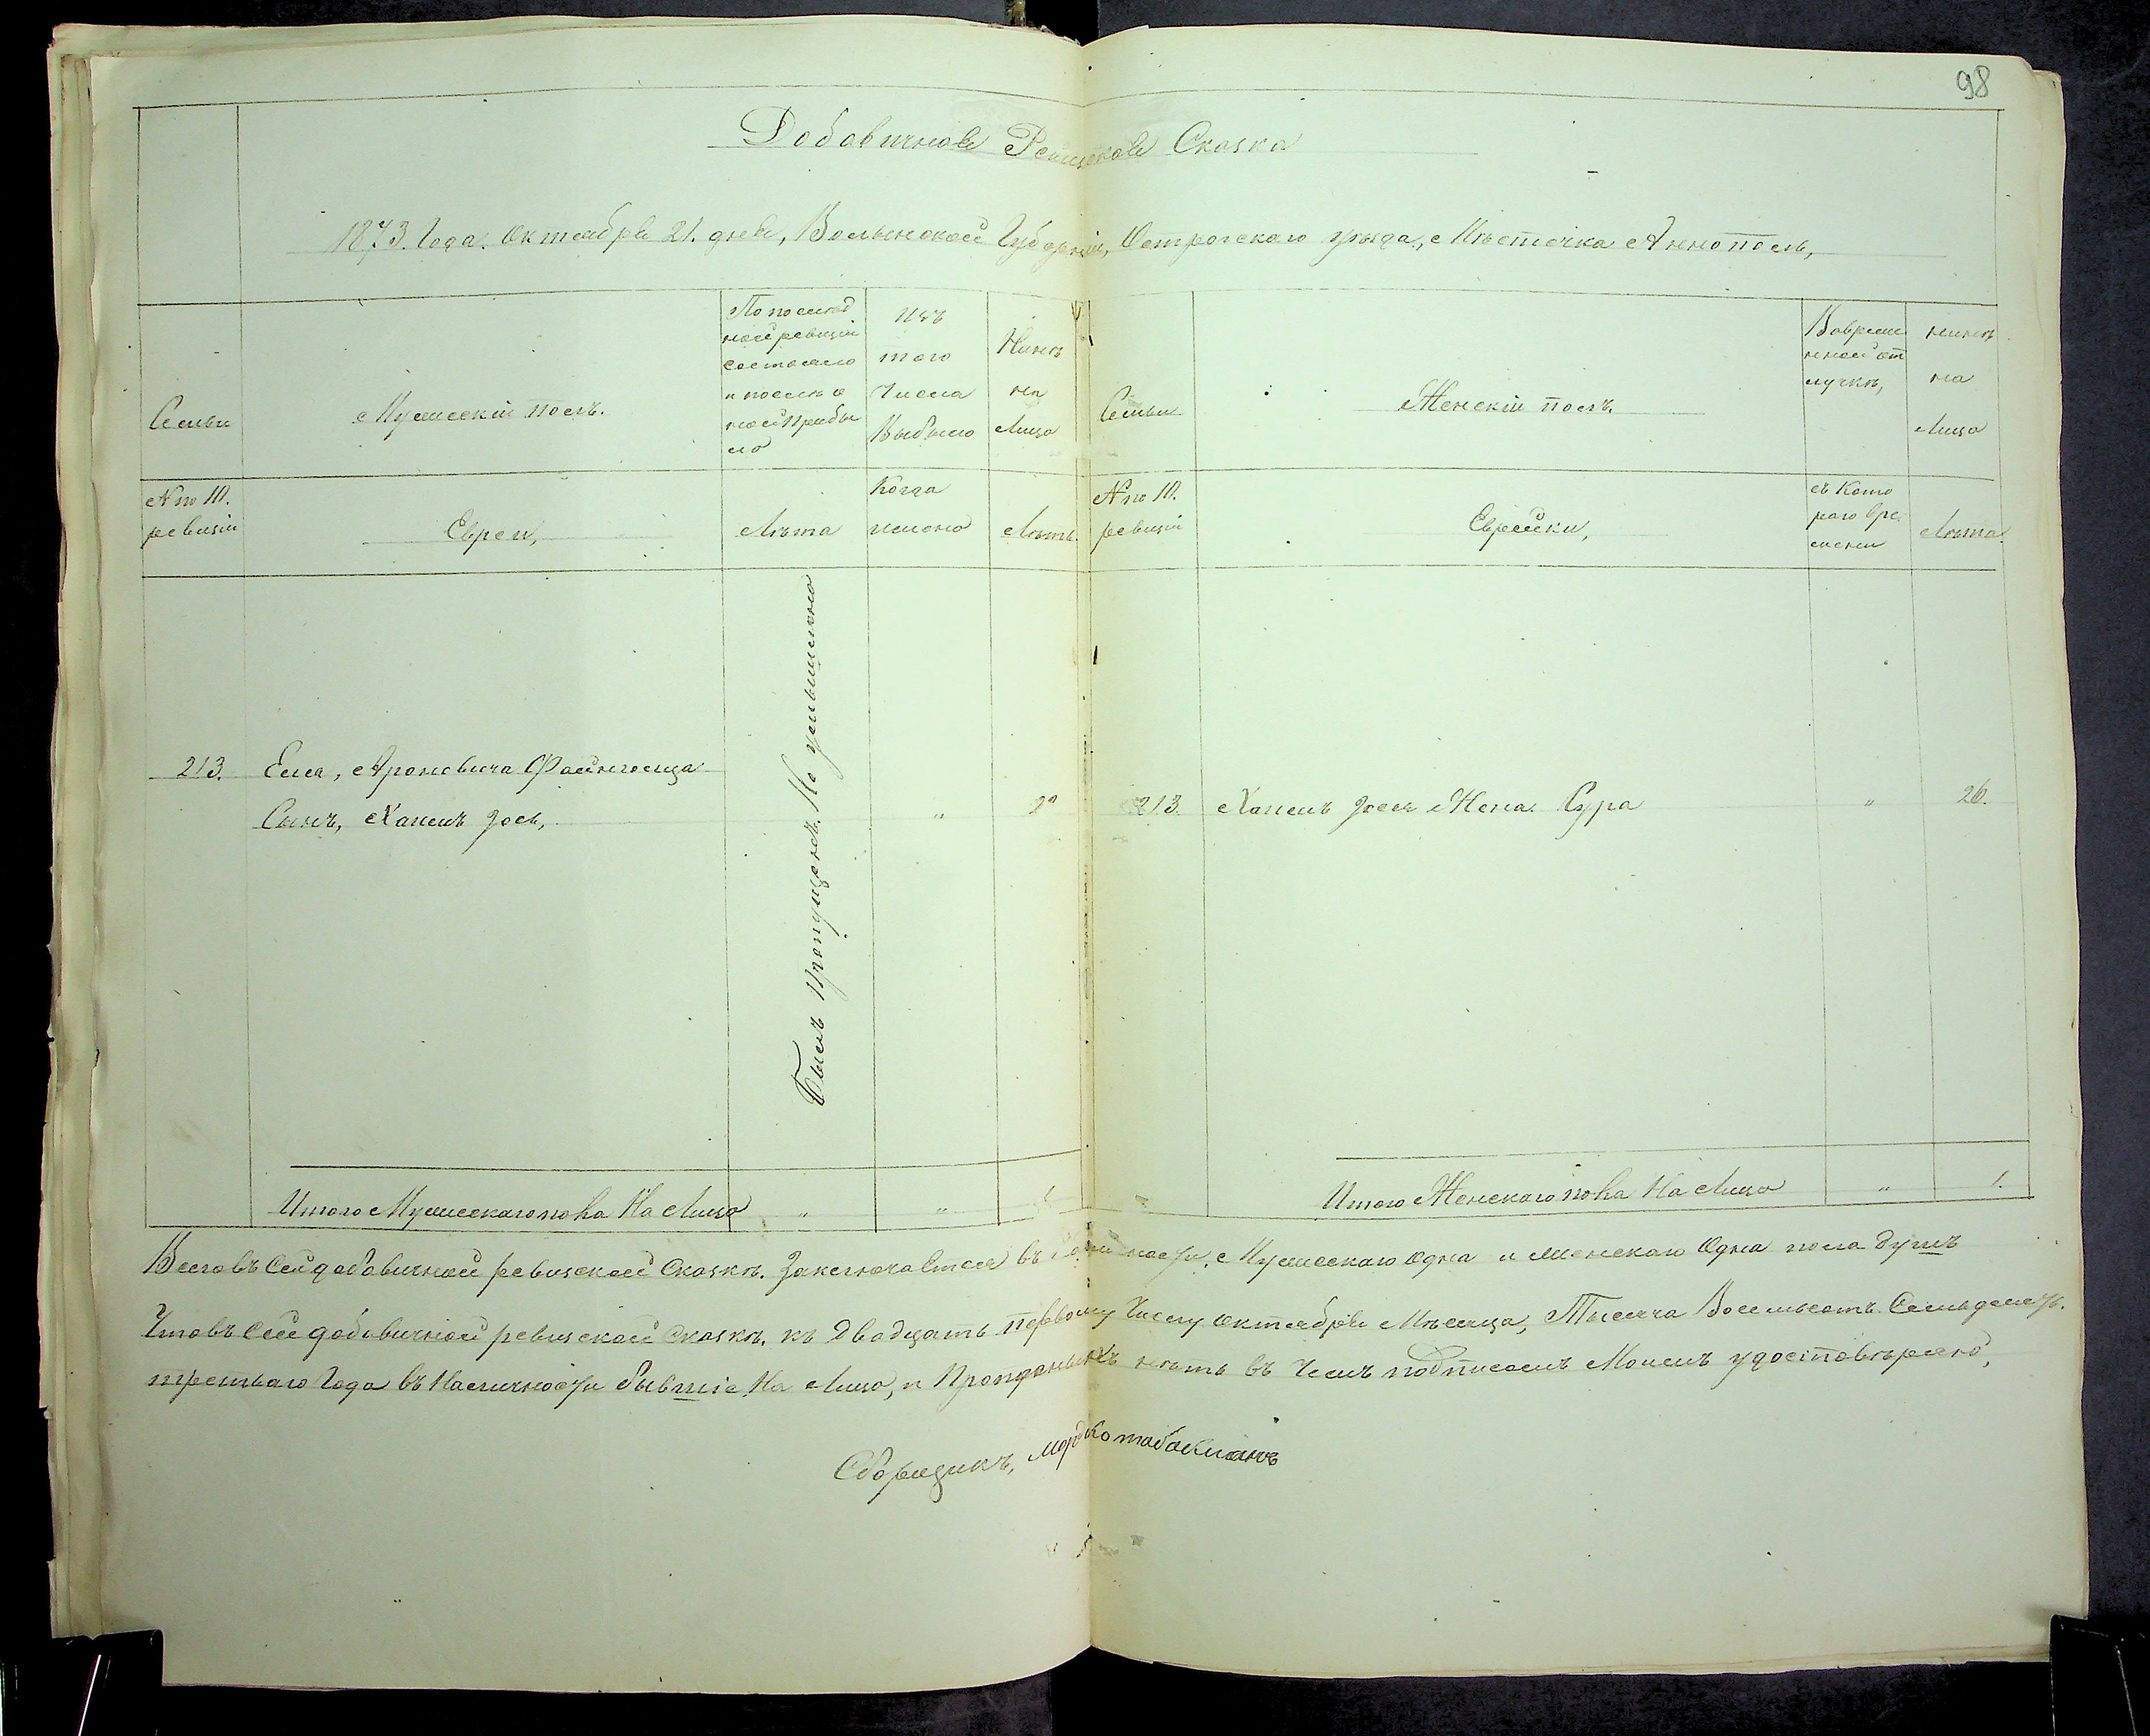 98
Добавичная Ревизская Сказка
1873. Года. Октября 21. дня, Волынской Губерніи, Острогскаго уѣзда, Мѣстечка Аннополь,
Семьи
Мужескій полъ.
По послѣд
ней ревизіи
состояло
и послѣ о
ной прибы
ло
Изъ
того
Числа
Выбыло
Нинѣ
на
Лицо
Семьи
Женскій полъ.
Вовреме
нной от
лучкѣ,
нинѣ
на
Лицо
№ по 10.
ревизіи
Евреи,
Лѣта
Когда
имено
Лѣтъ.
№ по 10.
ревизіи
Еврейки,
съ Кото
раго вре
мени
Лѣта.
213.
Еля, Ароновича Файнгольца
Сынъ, Хаимъ Зось,
Былъ пропущенъ. По уменьшенно
"
213.
Хаимъ Зось Жена Сура
"
26.
Итого Мужескаго пола На Лицо
"
"
1
Итого Женскаго пола На Лицо
"
1.
Всего въ Сей добавичной ревизской Сказкѣ. Заключается въ Мужескаго Одна и Женскаго Одна пола душъ
Что въ Сей добавичной ревизской Сказкѣ. къ двадцать первому Числу Октября Мѣсяца, Тысяча Восемьсотъ Семьдесять.
третьяго Года въ Наличности бывшіе На Лицо, и Пропданыхъ нѣтъ въ Чемъ подписомъ Моимъ удостовѣряю,
Сборщикъ, Мордко табакманъ